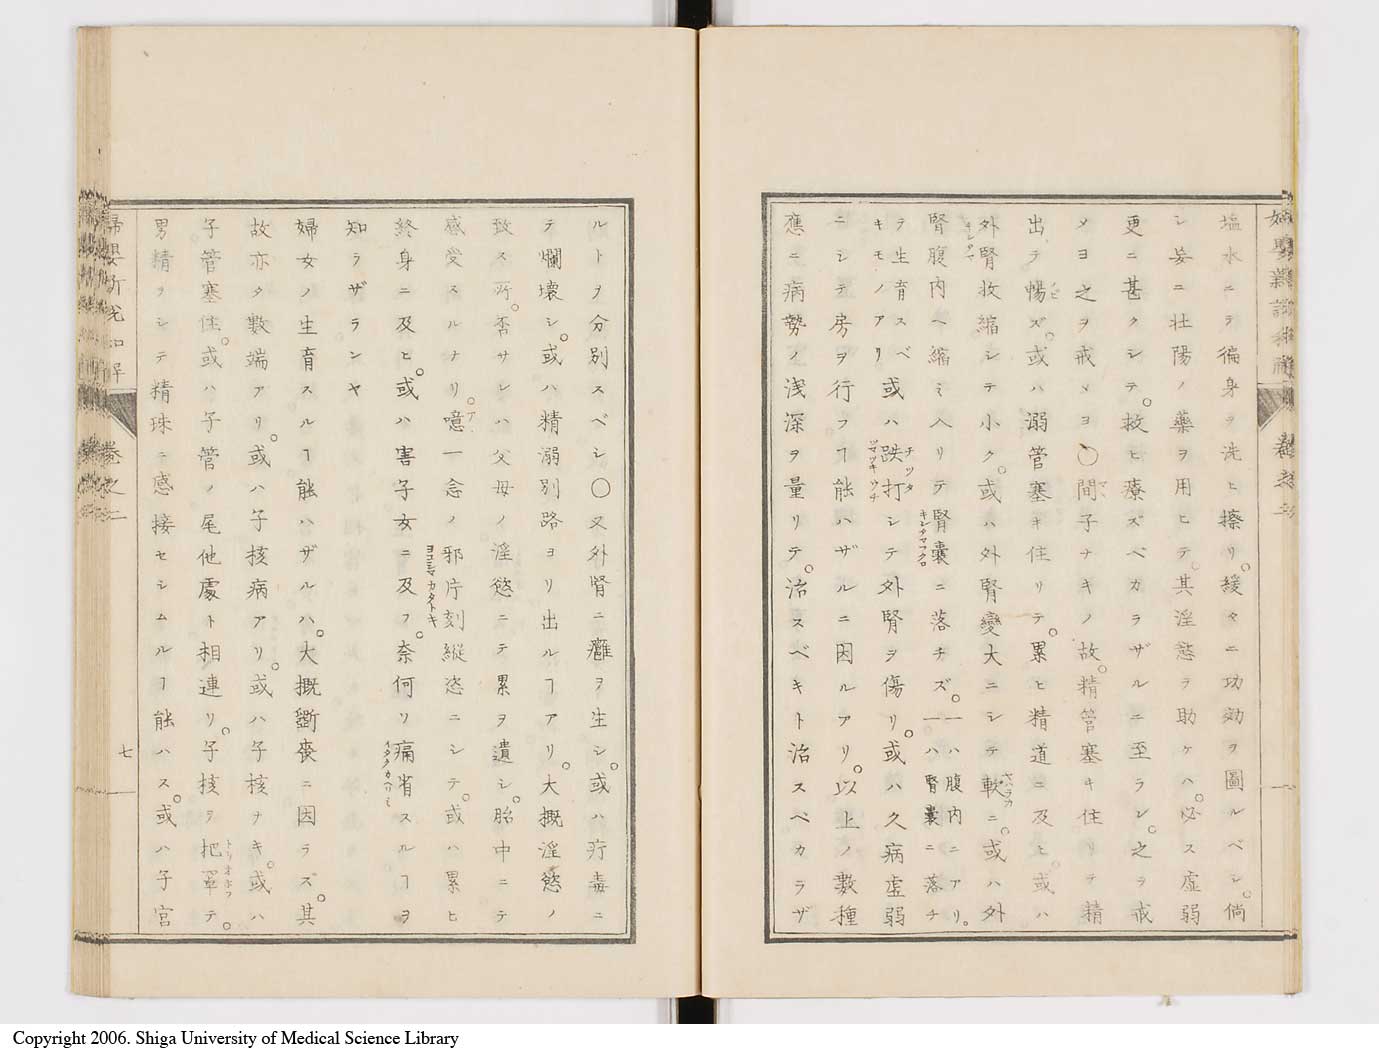 塩水ニテ徧身ヲ洗ヒ擦リ。緩々ニ功効ヲ圖ルベシ。倘
シ妄ニ壮陽ノ藥ヲ用ヒテ。其淫慾ヲ助ケハ。必ス虚弱
更ニ甚クシテ。救ヒ療ズベカラザルニ至ラン。之ヲ戒
メヨ之ヲ戒メヨ〇間子ナキノ故。精管塞キ住リテ精
出テ暢ズ。或ハ溺管塞キ住リテ。累ヒ精道ニ及ヒ。或ハ
外腎收縮シテ小ク。或ハ外腎變大ニシテ軟ニ。或ハ外
腎腹内ヘ縮ミ入リテ腎嚢ニ落チズ。一ハ腹内ニアリ。一ハ腎嚢ニ落チ
ラ生育スベキモノアリ 或ハ跌打シテ外腎ヲ傷リ。或ハ久病虚弱
ニシテ房ヲ行フヿ能ハザルニ因ルアリ。以上ノ數種
應ニ病勢ノ浅深ヲ量リテ。治スベキト治スベカラザ
ルトヲ分別スベシ〇又外腎ニ癰ヲ生シ。或ハ疔毒ニ
テ爛壊シ。或ハ精溺別路ヨリ出ルヿアリ。大概淫慾ノ
致ス所。否サレハ父母ノ淫慾ニテ累ヲ遺シ。胎中ニテ
感受スルナリ。噫一念ノ邪片刻縦恣ニシテ。或ハ累ヒ
終身ニ及ヒ。或ハ害子女ニ及フ。奈何ソ痛省スルヿヲ
知ラザランヤ
婦女ノ生育スルヿ能ハザルハ。大概斷喪ニ因ラズ。其
故亦タ數端アリ。或ハ子核病アリ。或ハ子核ナキ。或ハ
子管塞住。或ハ子管ノ尾他處ト相連リ。子核ヲ把罩テ。
男精ヲシテ精珠ニ感接セシムルヿ能ハス。或ハ子宮
卷之二
七